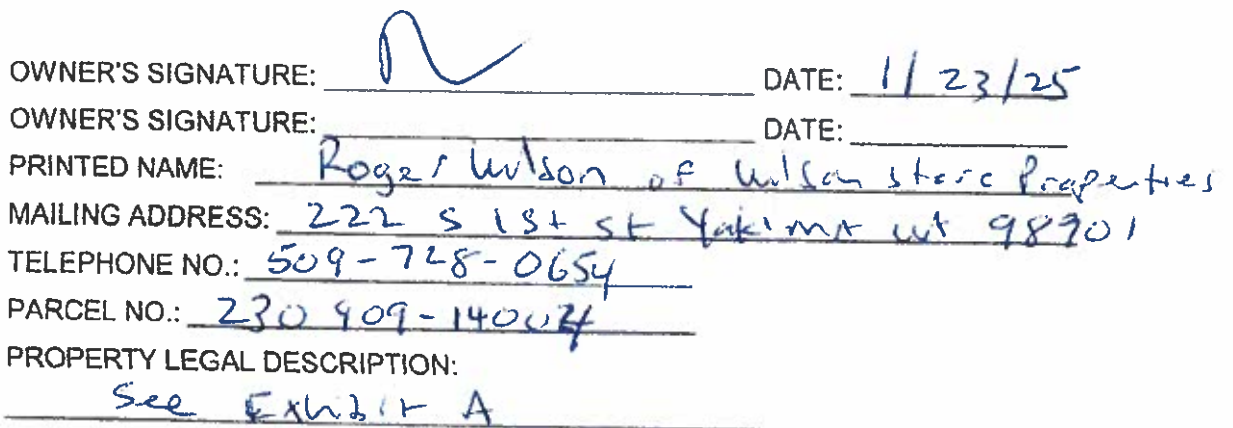 OWNER'S SIGNATURE: DATE: 1/23/25
OWNER'S SIGNATURE: DATE:
PRINTED NAME: Roger Wilson of Wilson store Properties
MAILING ADDRESS: 222 S 1st st Yakima wa 98901
TELEPHONE NO.: 509-728-0654
PARCEL NO.: 230909-14004
PROPERTY LEGAL DESCRIPTION:
See Exhibit A